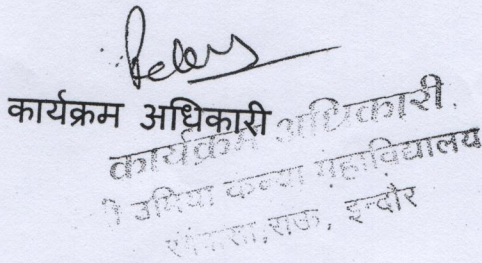 कार्यक्रम अधिकारी
कार्यक्रम अधिकारी.
उमिया कन्या महाविद्यालय
राऊ, इन्दौर